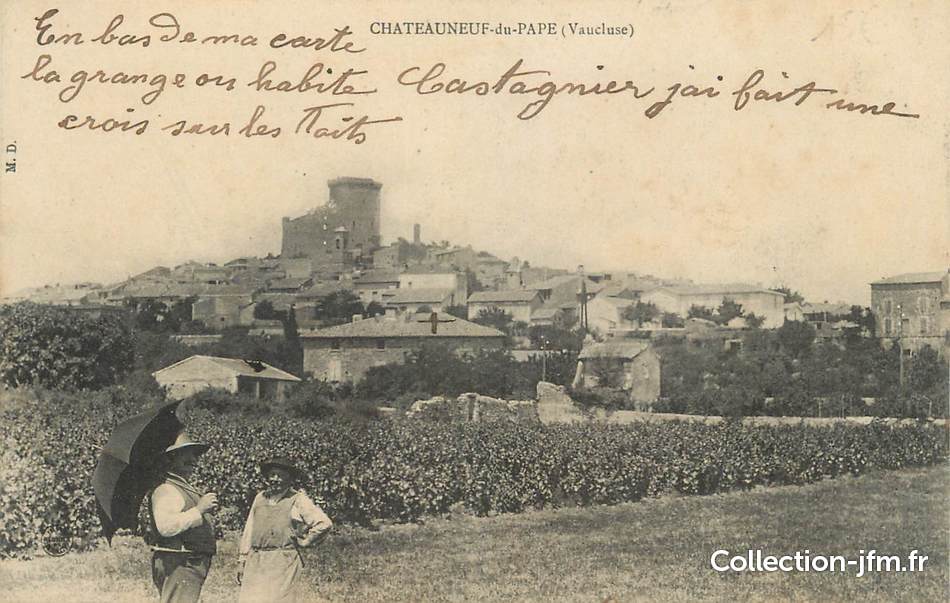 CHATEAUNEUF-du-PAPE (Vaucluse)
En bas de ma carte
la grange ou habite Castagnier j'ai fait une
crois sur les Toits
M. D.
Collection-jfm.fr